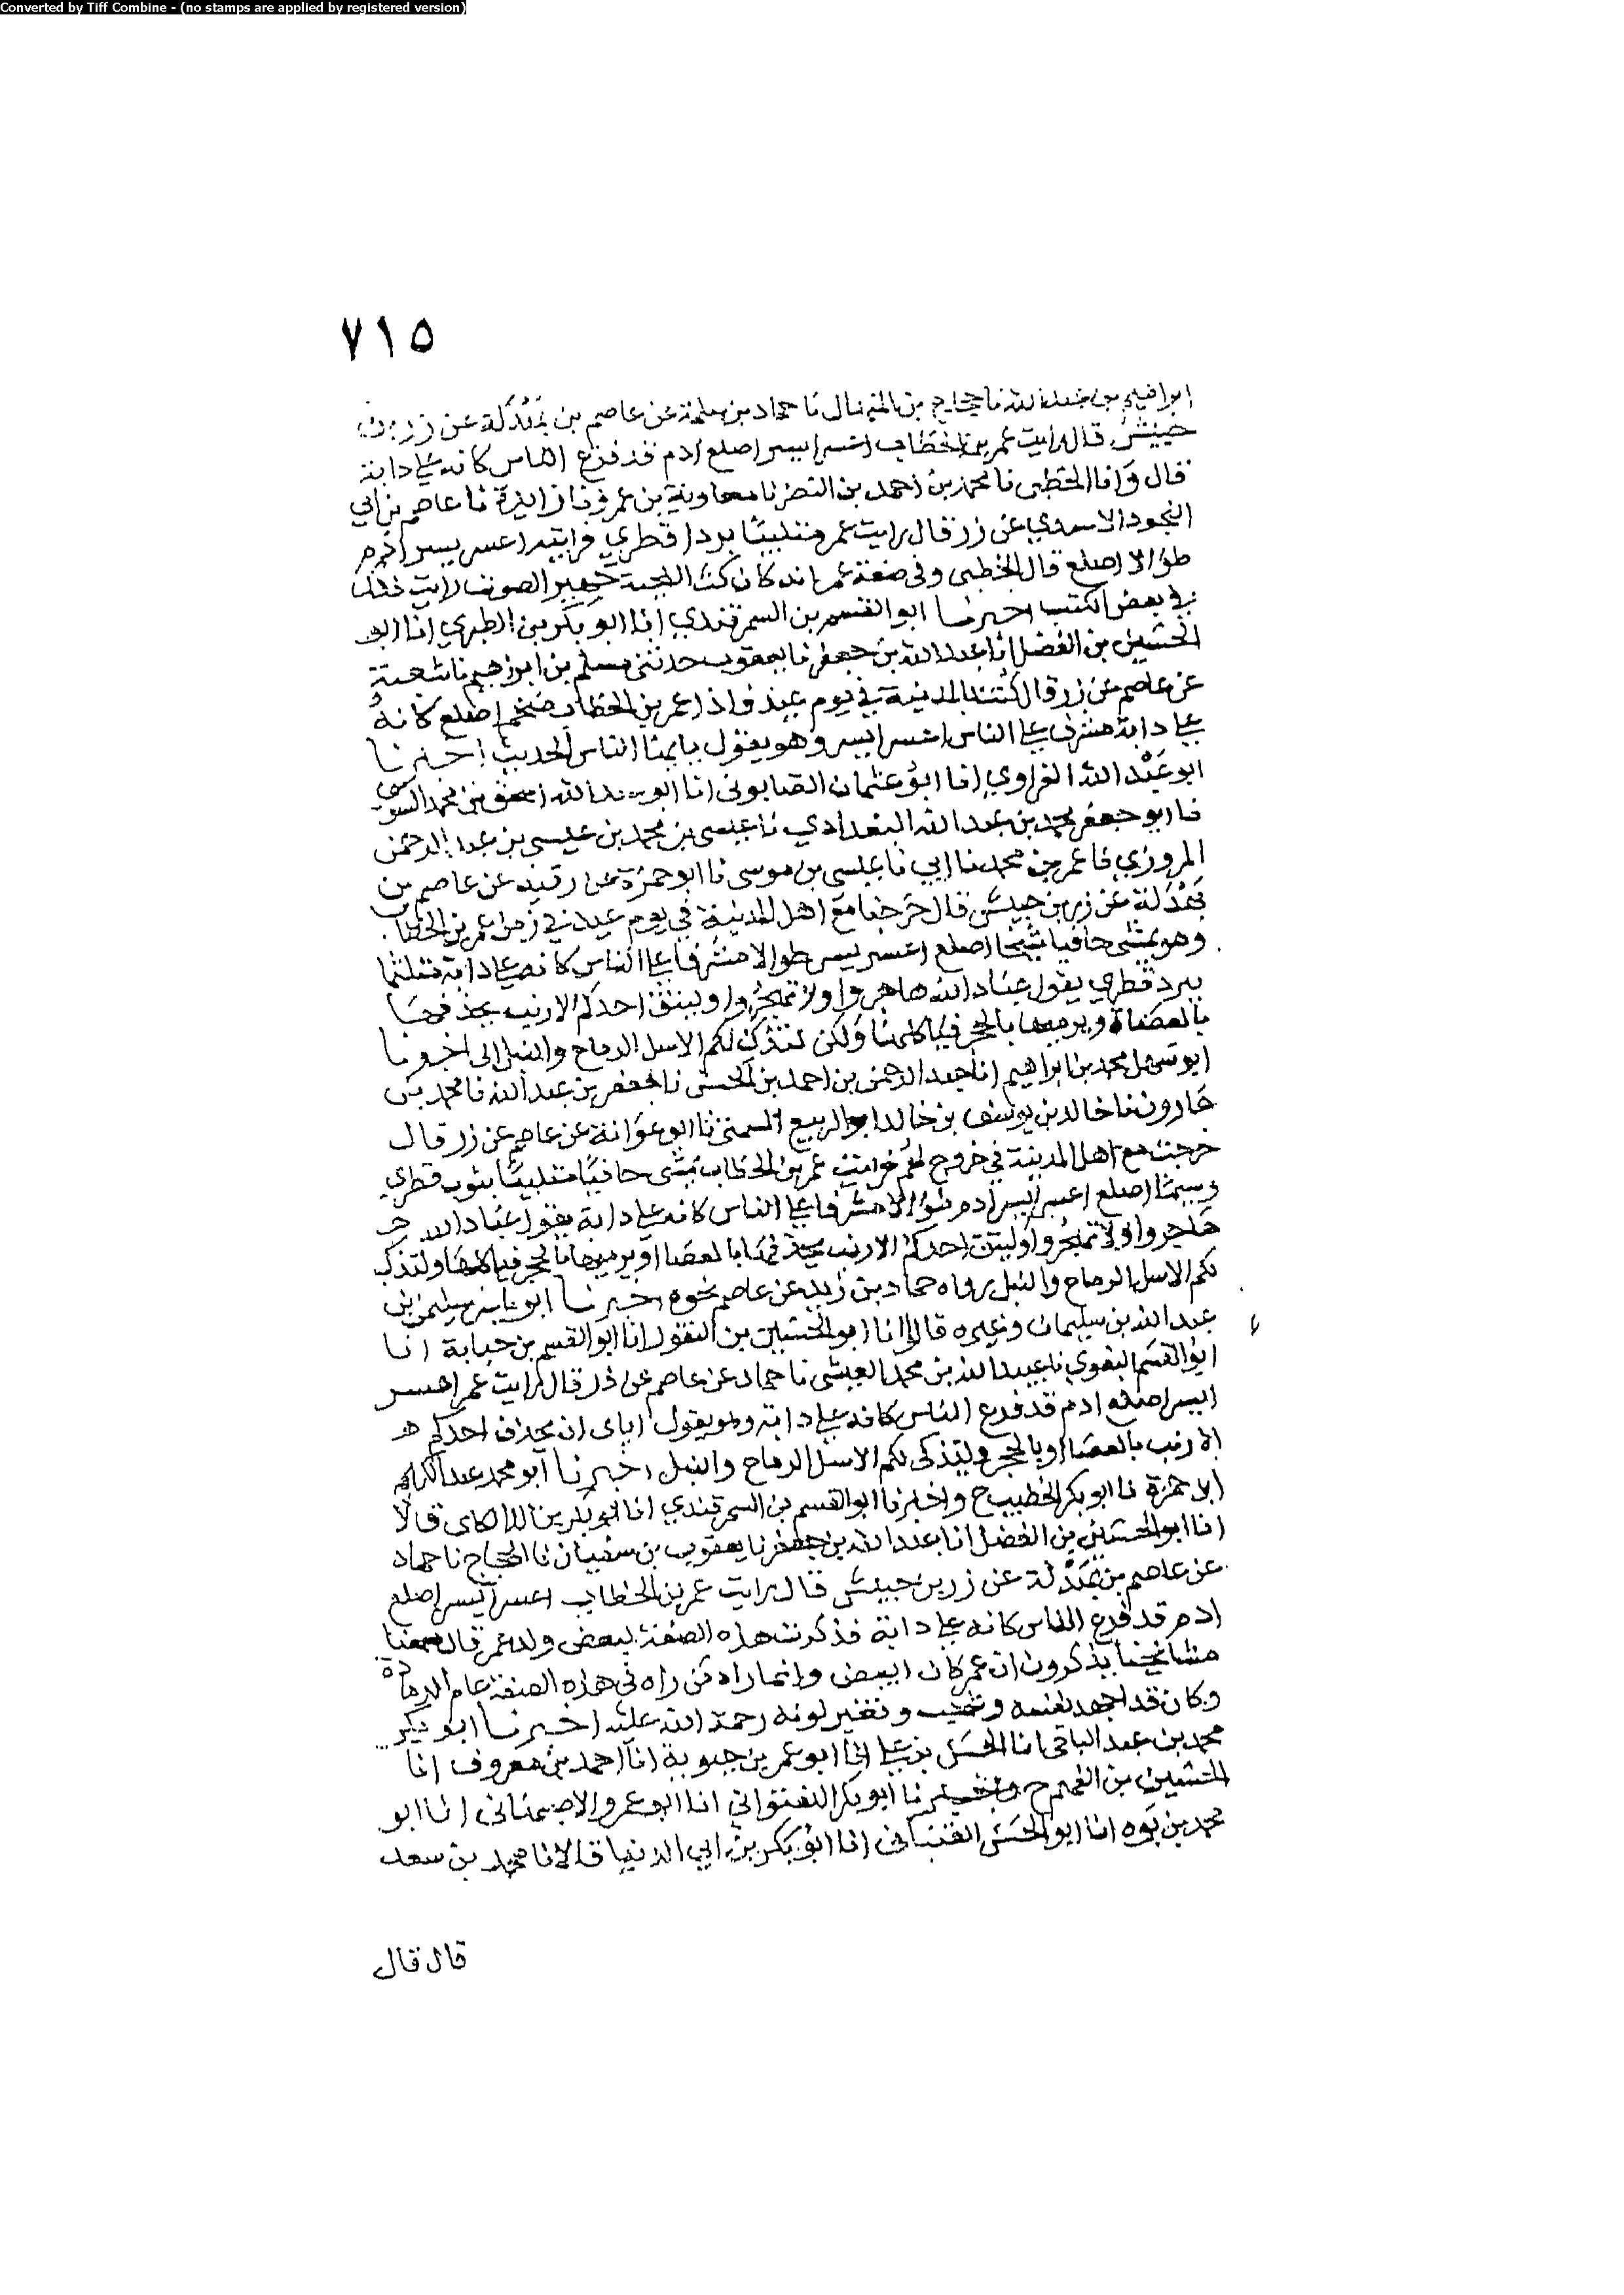 Converted by Tiff Combine - (no stamps are applied by registered version)
٧١٥
ابراهيم بن عبد الله نا حجاج بن المنهال نا حماد بن سلمة عن عاصم بن بهدلة عن زر بن
حبيش قال رايت عمر بن الخطاب اعسر ايسر اصلع ادم قد فرع الناس كانه على دابة
قال وانا الخطبى نا محمد بن احمد بن النضر نا معاوية بن عمرو نا زايدة نا عاصم بن ابي
النجود الاسدي عن زر قال رايت عمر متلببا بردا قطري فرايته اعسر يسر ادم
طوالا اصلع قال الخطبى وفى صفة عمر انه كان كث اللحية جهير الصوت رايت ذلك
في بعض الكتب اخبرنا ابو القسم بن السمرقندي انا ابو بكر بن الطبري انا ابو
الحسين بن الفضل انا عبد الله بن جعفر نا يعقوب حدثنى مسلم بن ابرهيم نا شعبة
عن عاصم عن زر قال كنت بالمدينة في يوم عيد فاذا عمر بن الخطاب ضخم اصلع كانه
على دابة مشرف على الناس اعسر ايسر وهو يقول يا ايها الناس الحديث اخبرنا
ابو عبد الله الفراوي انا ابو عثمان الصابونى انا ابو عبد الله اسحق بن محمد السوسى
نا ابو جعفر محمد بن عبد الله البغدادي نا عيسى بن محمد بن عيسى بن عبد الرحمن
المروزي نا عمر بن محمد نا ابي نا عيسى بن موسى نا ابو حمزة عن رقبه عن عاصم بن
بهدلة عن زر بن حبيش قال خرجنا مع اهل المدينة في يوم عيد في زمن عمر بن الخطاب
وهو يمشى حافيا شيخا اصلع اعسر يسر طوالا مشرفا على الناس كانه على دابة متلثما
ببرد قطري يقول عباد الله هاجروا ولا تهجروا وليتق احدكم الارنب يحذفها
بالعصاة ويرميها بالحجر فياكلها ولكن لتذك لكم الاسل الرماح والنبل اخبرنا
ابو سهل محمد بن ابراهيم انا عبد الرحمن بن احمد بن الحسن نا جعفر بن عبد الله نا محمد بن
هارون نا خالد بن يوسف بن خالد ابو الربيع السمتى نا ابو عوانة عن عاصم عن زر قال
خرجت مع اهل المدينة في خروج لهم فرايت عمر بن الخطاب يمشى حافيا متلببا بثوب قطري
وسيما اصلع اعسر ايسر ادم طوالا مشرفا على الناس كانه على دابة يقول عباد الله
هاجروا ولا تهجروا وليتق احدكم الارنب يحذفها بالعصا او يرميها بالحجر فياكلها ولتذك
لكم الاسل الرماح والنبل رواه حماد بن زيد عن عاصم نحوه اخبرنا ابو ياسر سليمن بن
عبد الله بن سليمان وغيره قالوا انا ابو الحسين بن النقور انا ابو القسم بن حبابة انا
ابو القسم البغوي نا عبيد الله بن محمد العيشى نا حماد عن عاصم عن زر قال رايت عمر اعسر
ايسر اصلع ادم قد فرع الناس كانه على دابة وهو يقول اياى ان يحذف احدكم
الارنب بالعصا او بالحجر وليذكى لكم الاسل الرماح والنبل اخبرنا ابو محمد عبد الكريم
ابن حمزة نا ابو بكر الخطيب ح واخبرنا ابو القسم بن السمرقندي انا ابو بكر بن اللالكاى قالا
انا ابو الحسين بن الفضل انا عبد الله بن جعفر نا يعقوب بن سفيان نا الحجاج نا حماد
عن عاصم بن بهدلة عن زر بن حبيش قال رايت عمر بن الخطاب اعسر ايسر اصلع
ادم قد فرع الناس كانه على دابة فذكرت هذه الصفة لبعض ولد عمر قال سمعنا
مشايخنا يذكرون ان عمر كان ابيض وانما راه من راه فى هذه الصفة عام الرمادة
وكان قد اجهد نفسه وشحب وتغير لونه رحمة الله عليه اخبرنا ابو بكر
محمد بن عبد الباقى انا الحسن بن على انا ابو عمر بن حيوية انا احمد بن معروف انا
الحسين بن الفهم ح واخبرنا ابو بكر اللفتوانى انا ابو عمرو الاصبهانى انا ابو
محمد بن يوه انا ابو الحسن اللنبانى انا ابو بكر بن ابي الدنيا قالا نا محمد بن سعد
قال قال